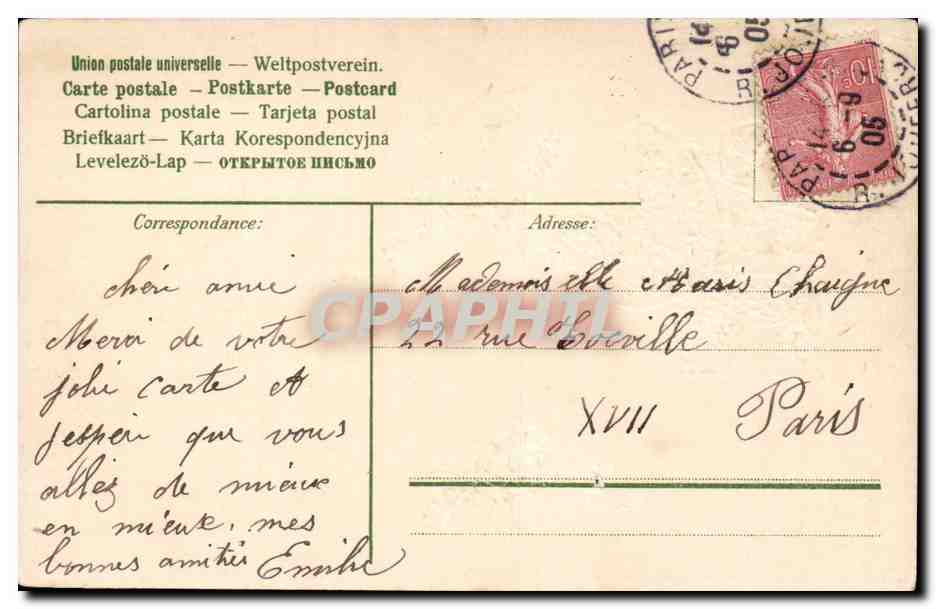 Union postale universelle — Weltpostverein.
Carte postale – Postkarte – Postcard
Cartolina postale — Tarjeta postal
Briefkaart — Karta Korespondencyjna
Levelezö-Lap — ОТКРЫТОЕ ПИСЬМО
PARI
R. JO
10
PAR
14
6 - 9
05
R.
Correspondance:
chéri amie
Merci de votre
jolie carte et
j'espéri que vous
allez de mieux
en mieux. mes
bonnes amitiés Emilie
Adresse:
Mademoiselle Maris Chaigne
22 rue Tocville
XVII Paris
CPAPHIL